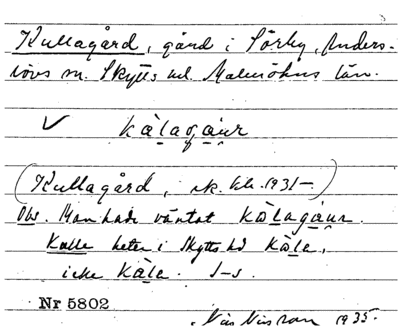 Kullagård, gård i Sörby, Anders-
lövs sn. Skytts hd. Malmöhus län.
✓ kàlagáur
(Kullagård, sk. 1931-)
Obs. Man hade väntat kàlagáur.
Kalle heter i Skytts hd kàle,
icke kàle. J-s.
Nr 5802
Nils Nilsson 1935.